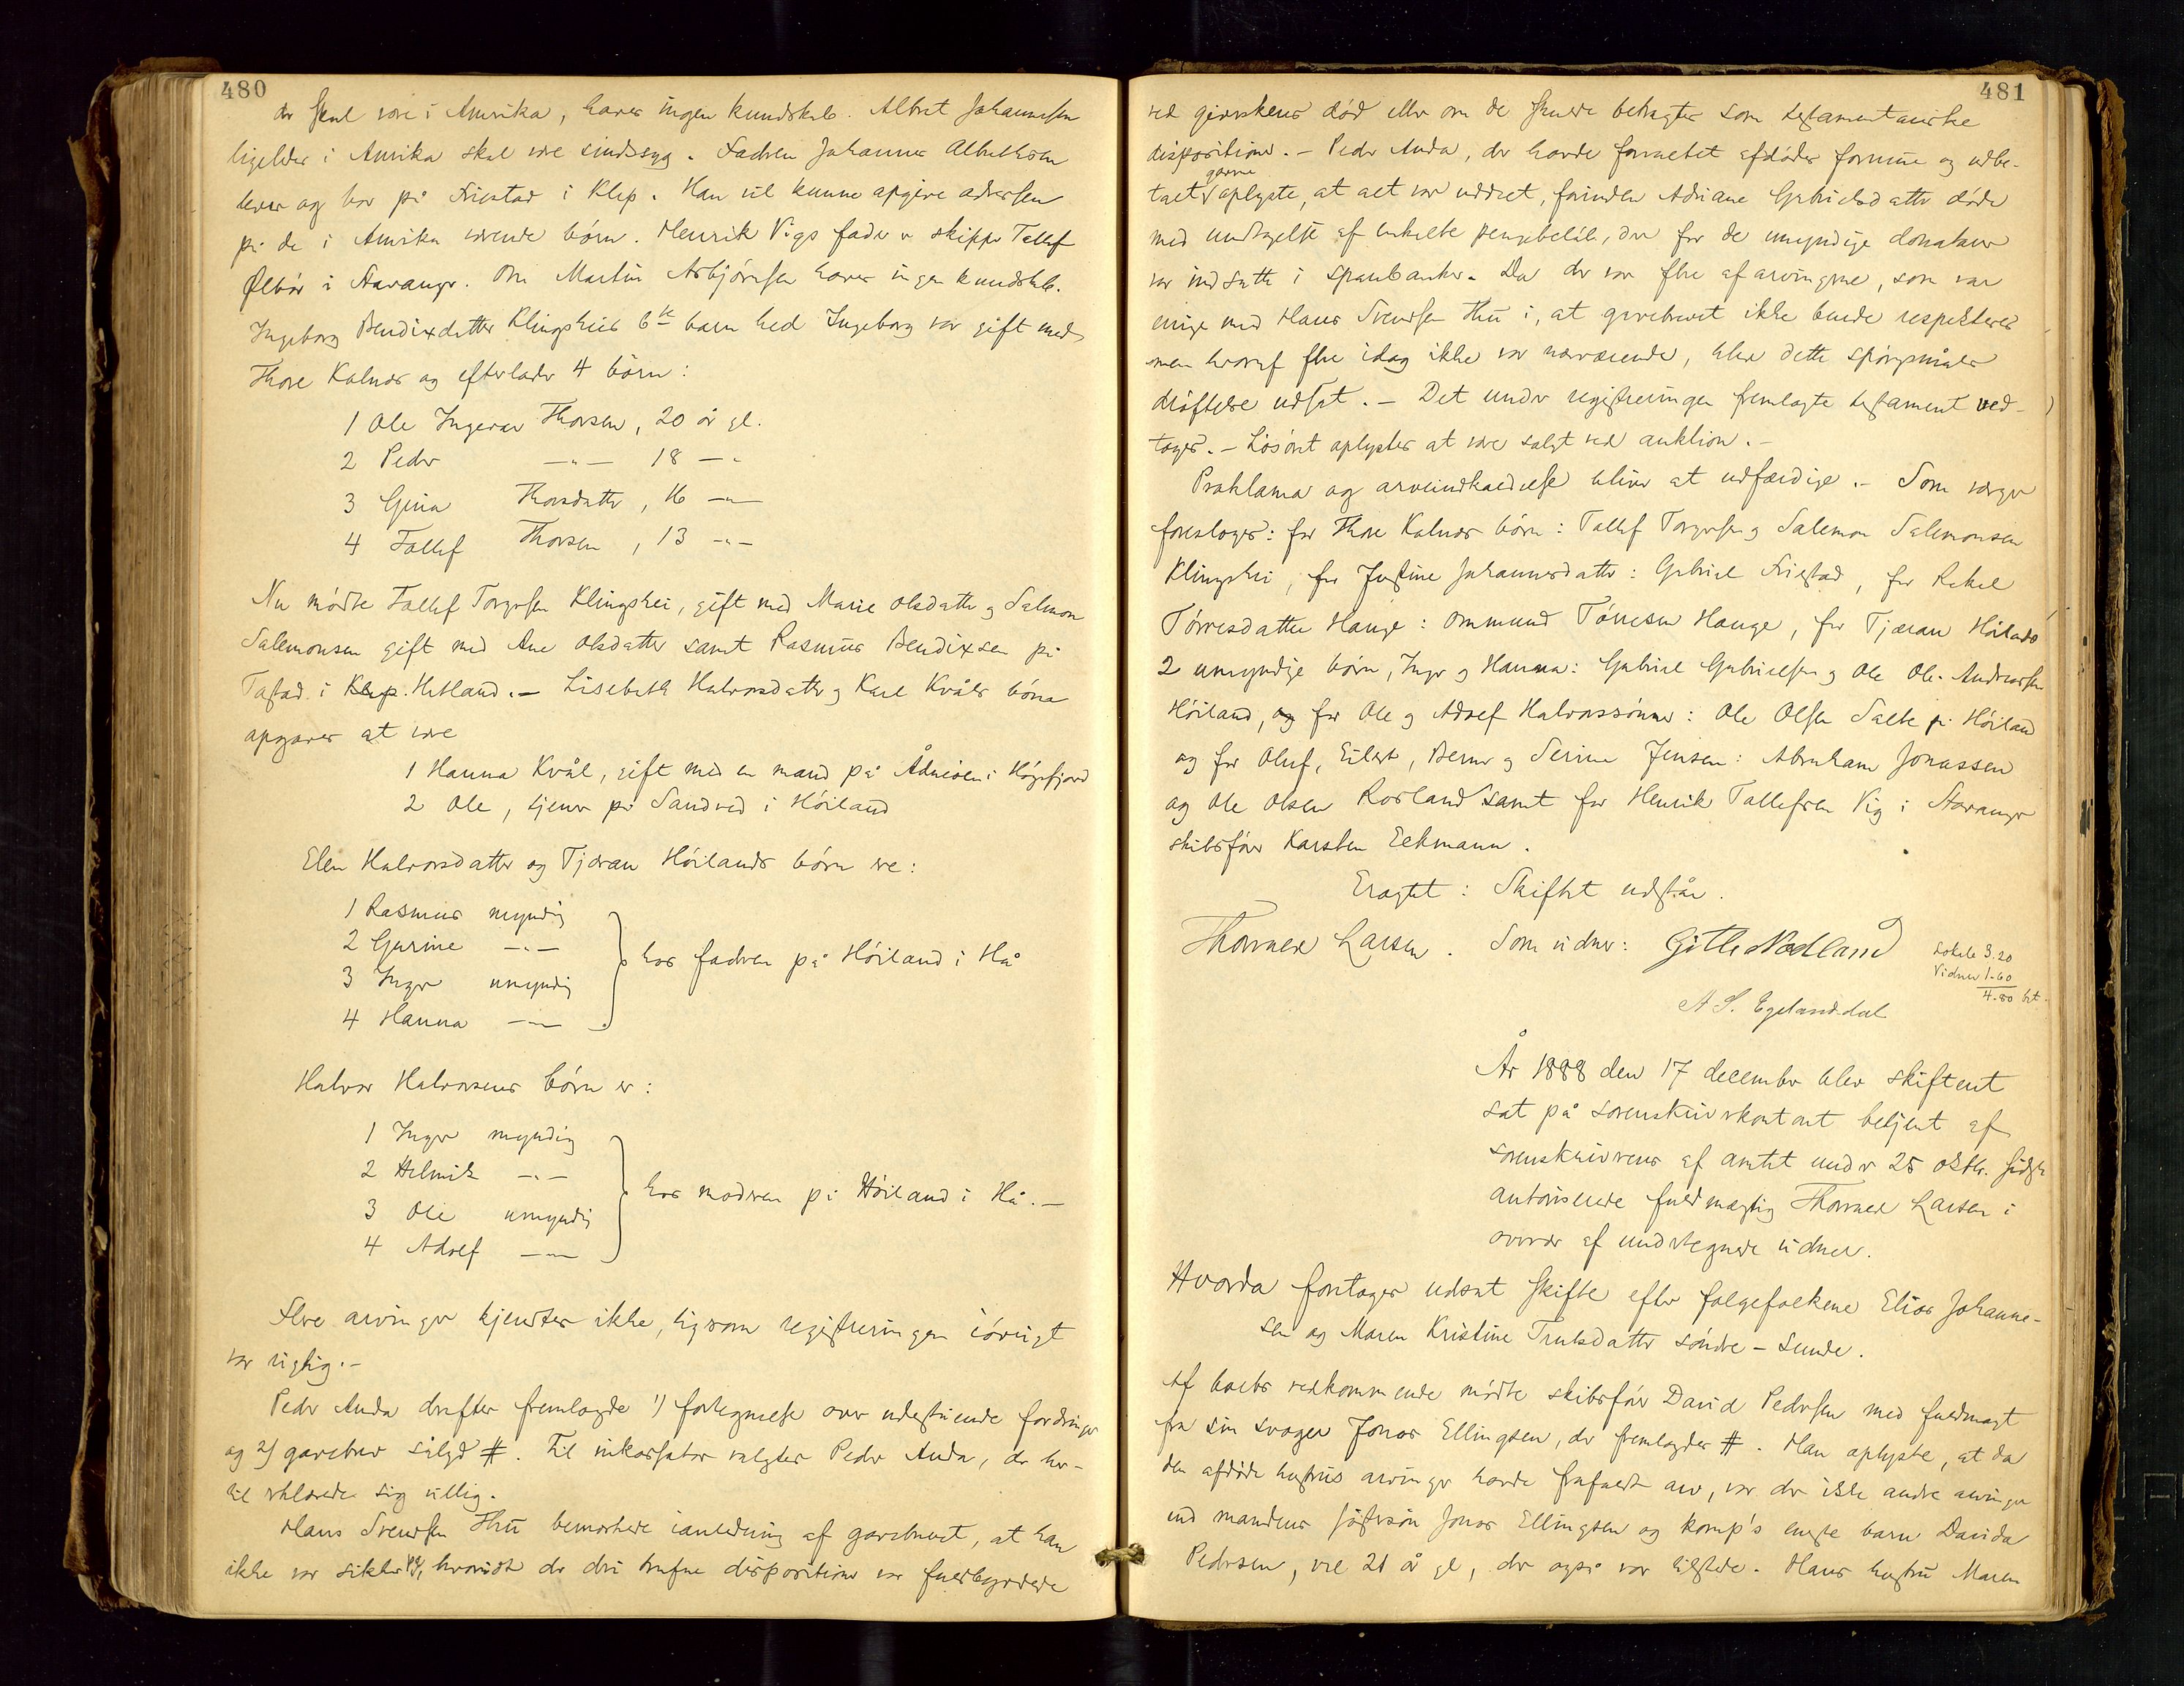 480
der skal være i Amerika, haves ingen kundskab. Albret Johannesen
ligeledes i Amerika skal være sindssyg. Faderen Johannes Albretsen
lever og bor på Friestad i Klep. Han vil kunne opgive adressen
på de i Amerika værende börn. Henrik Vigs fader er skipper Tallef
Ölbör i Stavanger. Om Martin Asbjörnsen haves ingen kundskab.
Ingeborg Bendixdatter Klingsheis 6te barn hed Ingeborg var gift med
Thore Kalnes og efterlader 4 börn:
1 Ole Ingvar Thorsen, 20 år gl.
2 Peder —"— 18 —"
3 Gina Thorsdatter, 16 —"—
4 Tallef Thorsen, 13 —"—
Nu mödte Tallef Torgersen Klingshei, gift med Marie Olsdatter og Salmon
Salemonsen gift med Ane Olsdatter samt Rasmus Bendixsen på
Tastad i Klep. Hetland. — Lisebeth Halvorsdatter og Karl Kvåls börn
opgaves at være
1 Hanna Kvål, gift med en mand på Ådnöen i Högsfjord
2 Ole, tjener på Sandved i Höiland
Elen Halvorsdatter og Tjæran Höilands börn ere:
1 Rasmus myndig
2 Gurine —"—
3 Inger umyndig
4 Hanna —"—
hos faderen på Höiland i Hå
Halvor Halvorsens börn er:
1 Inger myndig
2 Helmik —"—
3 Ole umyndig
4 Adsef —"—
hos moderen på Höiland i Hå. —
Flere arvinger kjendtes ikke, ligesom registreringen iövrigt
var rigtig. —
Peder Anda derefter fremlagde 1) fortegnelse over udestående fordringer
og 2) gavebrev sålyd #. Til inkassator valgtes Peder Anda, der her-
til erklærede sig villig.
Hans Svendsen Thu bemærkede i anledning af gavebrevet, at han
ikke var sikker på, hvorvidt de deri trufne dispositioner var fuldbyrdede
481
ved giverskens död eller om de skulde betragtes som testamentariske
dispositioner. — Peder Anda, der havde forvaltet afdödes formue og udbe-
talt gaverne oplyste, at alt var uddelt, forinden Adriane Gabrielsdatter döde
med undtagelse af enkelte pengebelöb, der for de umyndige donatarer
var indsatte i sparebanker. Da der var flere af arvingerne, som var
enige med Hans Svendsen Thu i, at gavebrevet ikke burde respekteres
men hvoraf flere idag ikke var nærværende, blev dette spörgsmåls
dröftelse udsat. — Det under registreringen fremlagte testament ved-
toges. — Lösöret oplystes at være solgt ved auktion. —
Proklama og arveindkaldelse bliver at udfærdige. — Som værger
foresloges: for Thore Kalnes börn: Tallef Torgersen og Salemon Salemonsen
Klingshei, for Justine Johannesdatter: Gabriel Friestad, for Rakel
Törresdatter Hauge: Ommund Törresen Hauge, for Tjæran Höilands
2 umyndige börn, Inger og Hanna: Gabriel Gabrielsen og Ole Ol. Andreassen
Höiland, og for Ole og Adsef Halvorssönner: Ole Olsen Salte på Höiland
og for Oluf, Eilert, Berner og Serine Jensen: Abraham Jonassen
og Ole Olsen Rosland samt for Henrik Tallefsen Vig i Stavanger
skibsförer Karsten Eckmann.
Eragtet: Skiftet udstår.
Thorvald Larsen. Som vidner: Gitle Nedland
A S. Egelandsdal
Lokale 3.20
Vidner 1.60
4.80 bt.
År 1888 den 17 december blev skifteret
sat på sorenskriverkontoret betjent af
sorenskriverens af amtet under 25 oktbr. sidst
autoriserede fuldmægtig Thorvald Larsen i
overvær af undertegnede vidner.
Hvorda foretoges udsat skifte efter folgefolkene Elias Johanne-
sen og Maren Kristine Trulsdatter söndre-Sunde.
Af boets vedkommende mödte skibsförer David Pedersen med fuldmagt
fra sin svoger Jonas Ellingsen, der fremlagdes #. Han oplyste, at da
den afdöde hustrus arvinger havde frafaldt arv, var der ikke andre arvinger
end mandens söstersön Jonas Ellingsen og komp's eneste barn Davida
Pedersen, vel 21 år gl, der også var tilstede. Hans hustru Maren